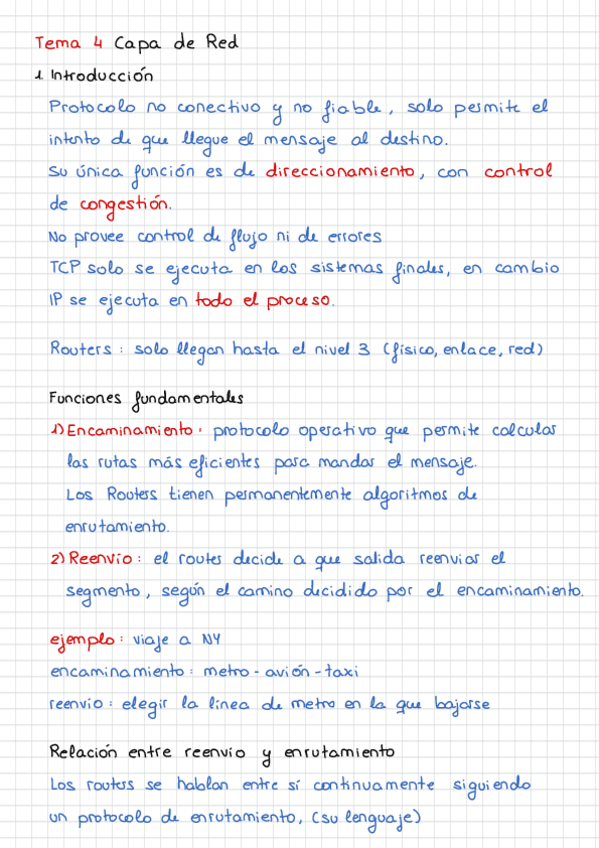 Tema 4 Capa de Red
1 Introducción
Protocolo no conectivo y no fiable, solo permite el
intento de que llegue el mensaje al destino.
Su única función es de direccionamiento, con control
de congestión.
No provee control de flujo ni de errores
TCP solo se ejecuta en los sistemas finales, en cambio
IP se ejecuta en todo el proceso.
Routers: solo llegan hasta el nivel 3 (físico, enlace, red)
Funciones fundamentales
1) Encaminamiento: protocolo operativo que permite calcular
las rutas más eficientes para mandar el mensaje.
Los Routers tienen permanentemente algoritmos de
enrutamiento.
2) Reenvío: el router decide a que salida reenviar el
segmento, según el camino decidido por el encaminamiento.
ejemplo: viaje a NY
encaminamiento: metro - avión - taxi
reenvío: elegir la linea de metro en la que bajarse
Relación entre reenvío y enrutamiento
Los routers se hablan entre sí continuamente siguiendo
un protocolo de enrutamiento, (su lenguaje)